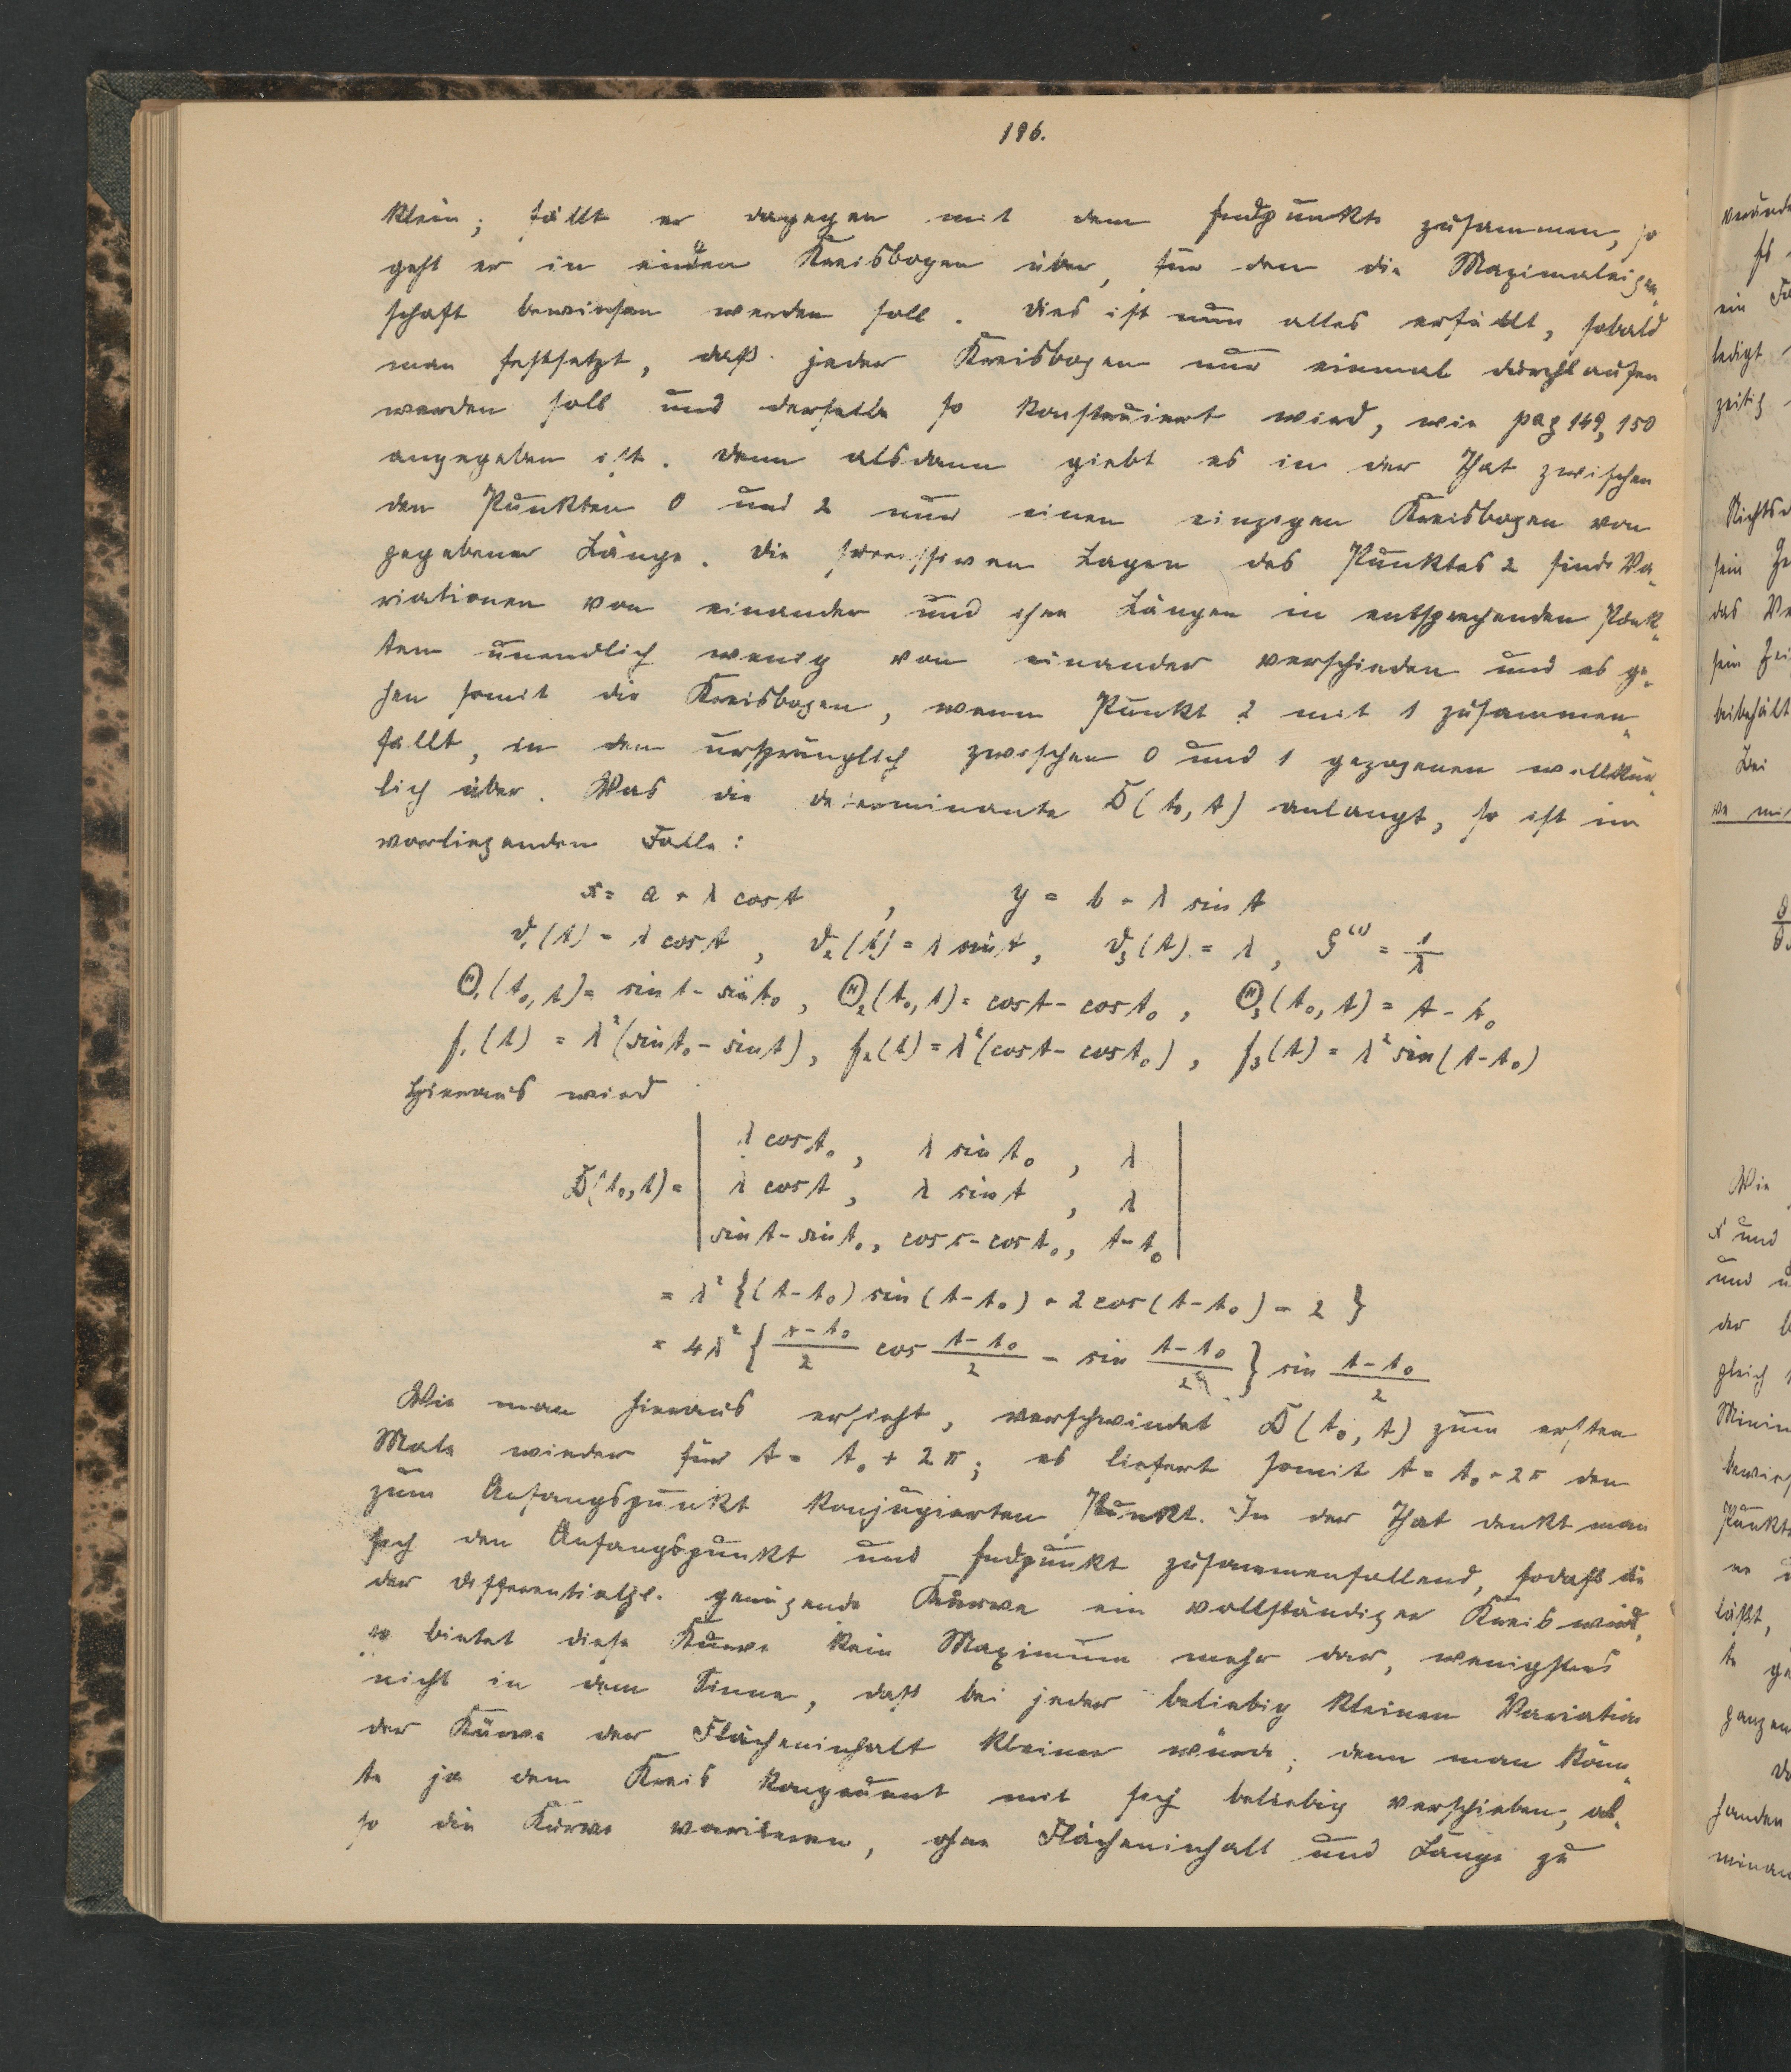 196.
klein; fällt er dagegen mit dem Endpunkte zusammen, so
geht er in einen Kreisbogen über, für den die Maximaleigen-
schaft bewiesen werden soll. Dies ist nun alles erfüllt, sobald
man festsetzt, daß jeder Kreisbogen nur einmal durchlaufen
werden soll und derselbe so konstruiert wird, wie pag 149, 150
angegeben ist. Denn alsdann giebt es in der That zwischen
den Punkten 0 und 2 nur einen einzigen Kreisbogen von
gegebener Länge. Die successiven Lagen des Punktes 2 sind Va-
riationen von einander und ihre Längen in entsprechenden Punk-
ten unendlich wenig von einander verschieden und es ge-
hen somit die Kreisbogen, wenn Punkt 2 mit 1 zusammen-
fällt, in den ursprünglich zwischen 0 und 1 gezogenen willkür-
lich über. Was die Determinante D(t₀, t) anlangt, so ist im
vorliegenden Falle:
x = a + λ cos t , y = b + λ sin t
ϑ₁(t) = λ cos t , ϑ₂(t) = λ sin t , ϑ₃(t) = λ , = 1/λ
Θ₁(t₀, t) = sin t - sin t₀ , Θ₂(t₀, t) = cos t - cos t₀ , Θ₃(t₀, t) = t - t₀
f₁(t) = λ²(sin t₀ - sin t), f₂(t) = λ²(cos t - cos t₀) , f₃(t) = λ² sin(t - t₀)
Hieraus wird
| λ cos t₀ , λ sin t₀ , λ |
D(t₀, t) = | λ cos t , λ sin t , λ |
| sin t - sin t₀ , cos t - cos t₀ , t - t₀ |
= λ² {(t - t₀) sin(t - t₀) + 2 cos(t - t₀) - 2 }
= 4λ² { (t - t₀)/2 cos (t - t₀)/2 - sin (t - t₀)/2 } sin (t - t₀)/2
Wie man hieraus ersieht, verschwindet D(t₀, t) zum ersten
Male wieder für t = t₀ + 2π; es liefert somit t = t₀ + 2π den
zum Anfangspunkt konjugierten Punkt. In der That denkt man
sich den Anfangspunkt und Endpunkt zusammenfallend, sodaß die
der Differentialgl. genügende Kurve ein vollständiger Kreis wird,
so bietet diese Kurve kein Maximum mehr dar, wenigstens
nicht in dem Sinne, daß bei jeder beliebig kleinen Variation
der Kurve der Flächeninhalt kleiner würde; denn man könn-
te ja den Kreis kongruent mit sich beliebig verschieben, al-
so die Kurve variieren, ohne Flächeninhalt und Länge zu